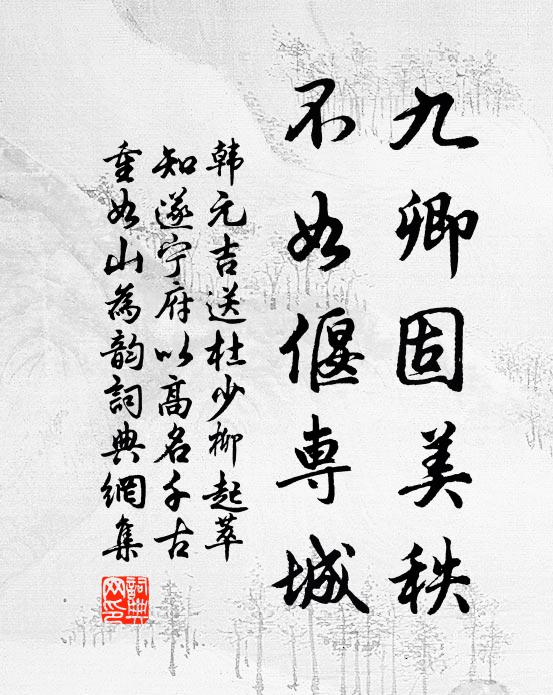 九卿固美秩
不如偃専城
韩元吉送杜少柳起萃
知遂宁府以高名千古
重如山为韵詞典網集